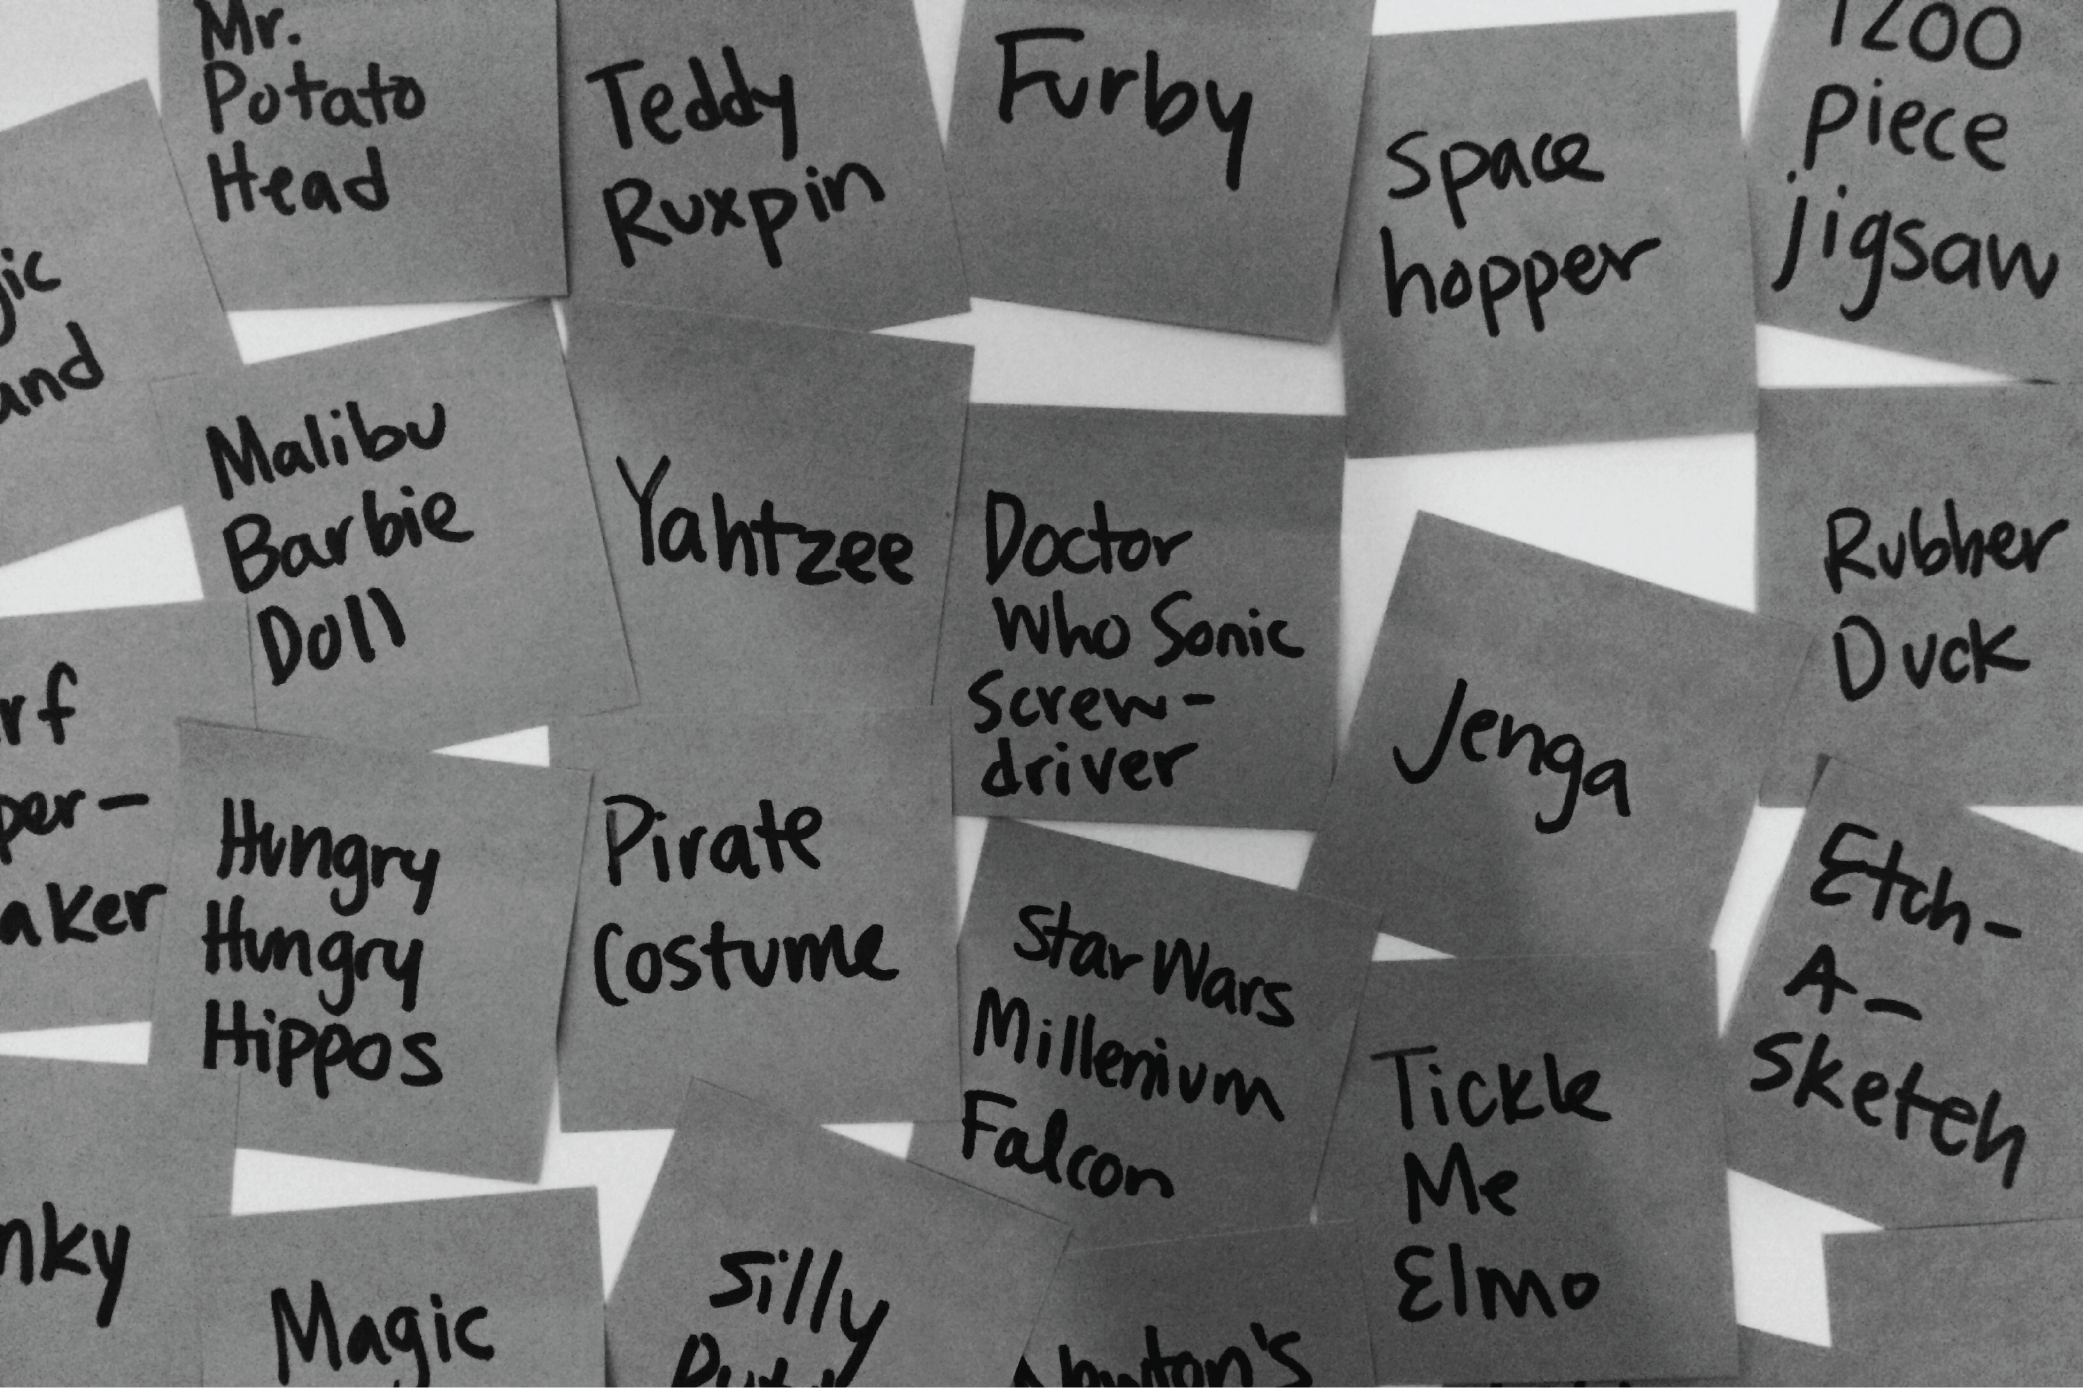 Mr.
Potato
Head
Teddy
Ruxpin
Furby
Space
hopper
1200
piece
jigsaw
Malibu
Barbie
Doll
Yahtzee
Doctor
Who Sonic
Screw-
driver
Jenga
Rubber
Duck
Hungry
Hungry
Hippos
Pirate
Costume
Star Wars
Millenium
Falcon
Tickle
Me
Elmo
Etch-
A-
Sketch
Magic
Silly
Newton's